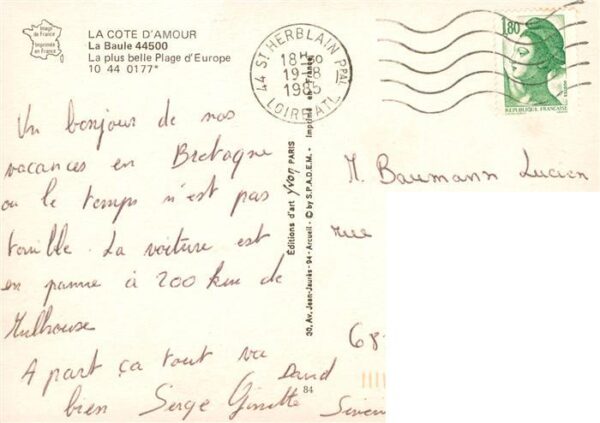 Image de France
Imprimée en France
LA COTE D'AMOUR
La Baule 44500
La plus belle Plage d'Europe
10 44 0177*
Un bonjour de nos
vacances en Bretagne
où le temps n'est pas
La voiture est
en panne à 200 km de
Mulhouse
A part ça tout va
bien Serge Ginette David
Editions d'art Yvon PARIS
30, Av. Jean-Jaurès - 94 - Arcueil - © by S.P.A.D.E.M. - Imprimé en France
84
44 ST HERBLAIN PPAL
18H
19-8
1985
LOIRE ATL.
1,80
REPUBLIQUE FRANÇAISE
M. Baumann Lucien
rue
68-